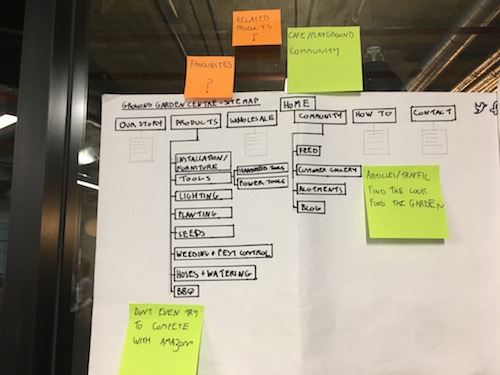 RELATED
PRODUCTS
FAVOURITES
?
CAFE/PLAYGROUND
COMMUNITY
GROWING GARDEN CENTRE - SITE MAP
HOME
OUR STORY
PRODUCTS
WHOLESALE
COMMUNITY
HOW TO
CONTACT
INSTALLATION/
FURNITURE
TOOLS
HANDHELD TOOLS
POWER TOOLS
LIGHTING
PLANTING
SEEDS
WEEDING + PEST CONTROL
HOSES + WATERING
BBQ
FEED
CUSTOMER GALLERY
ALOTMENTS
BLOG
ARTICLES/TRAFFIC
FIND THE LOOK
FIND THE GARDEN
DON'T EVEN TRY
TO COMPETE
WITH AMAZON